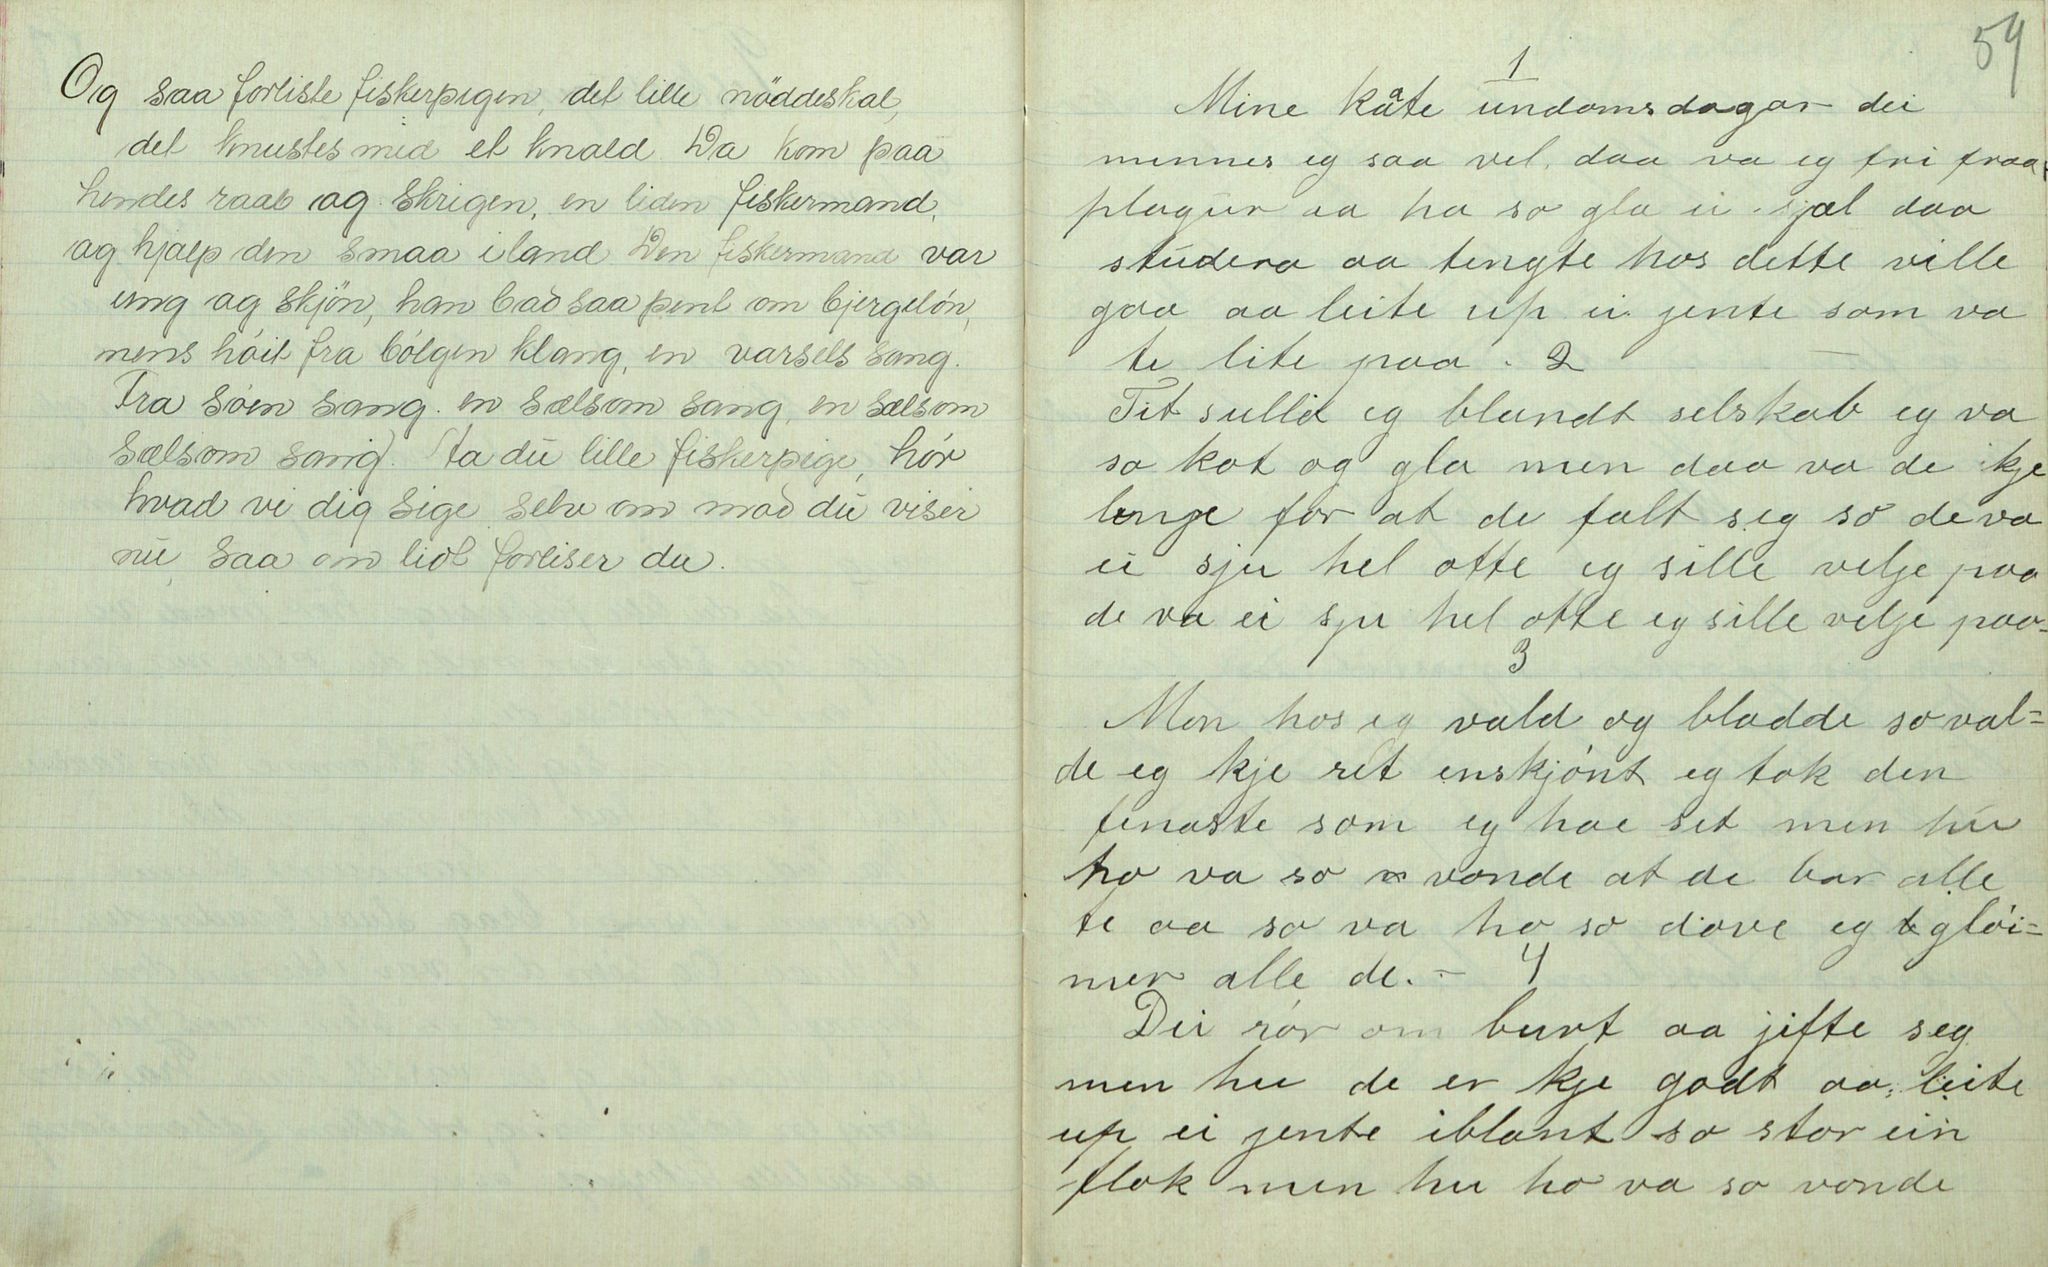 Og saa forliste fiskerpigen, det lille nöddeskal,
det knustes med et knald. Da kom paa
hendes raab og skrigen, en liden fiskermand,
og hjalp den smaa i land Den fiskermand var
ung og skjön, han bad saa pent om bjergelön,
mens höit fra bölgen klang, en varsels sang.
Fra söen sang. en sælsom sang, en sælsom
sælsom sang). (ta dū lille fiskerpige, hör
hvad vi dig sige selv om mod dū viser
nū, saa om lidt forliser du.
54
1
Mine kåte undomsdagar dei
minnes eg saa vel. daa va eg fri fraa
plagur aa ha so gla ei sjæl daa
studera aa tengte hos dette ville
gaa aa leite up ei jente som va
te lite paa. 2
Tit sulla eg blandt selskab eg va
so kat og gla men daa va de ikje
lenje för at de falt seg so de va
ei sju hel otte eg sille velje paa
de va ei sju hel otte eg sille velje paa-
3
Men hos eg vald og bladde so val=
de eg kje ret enskjönt eg tok den
finaste som eg hae set men hu
ho va so vonde at de bar alle
te aa so va ho so dove eg glöi=
mer alle de. - 4
Dei rör om burt aa jifte seg
men hu de er kje godt aa leite
up ei jente iblant so stor ein
flok men hu ho va so vonde